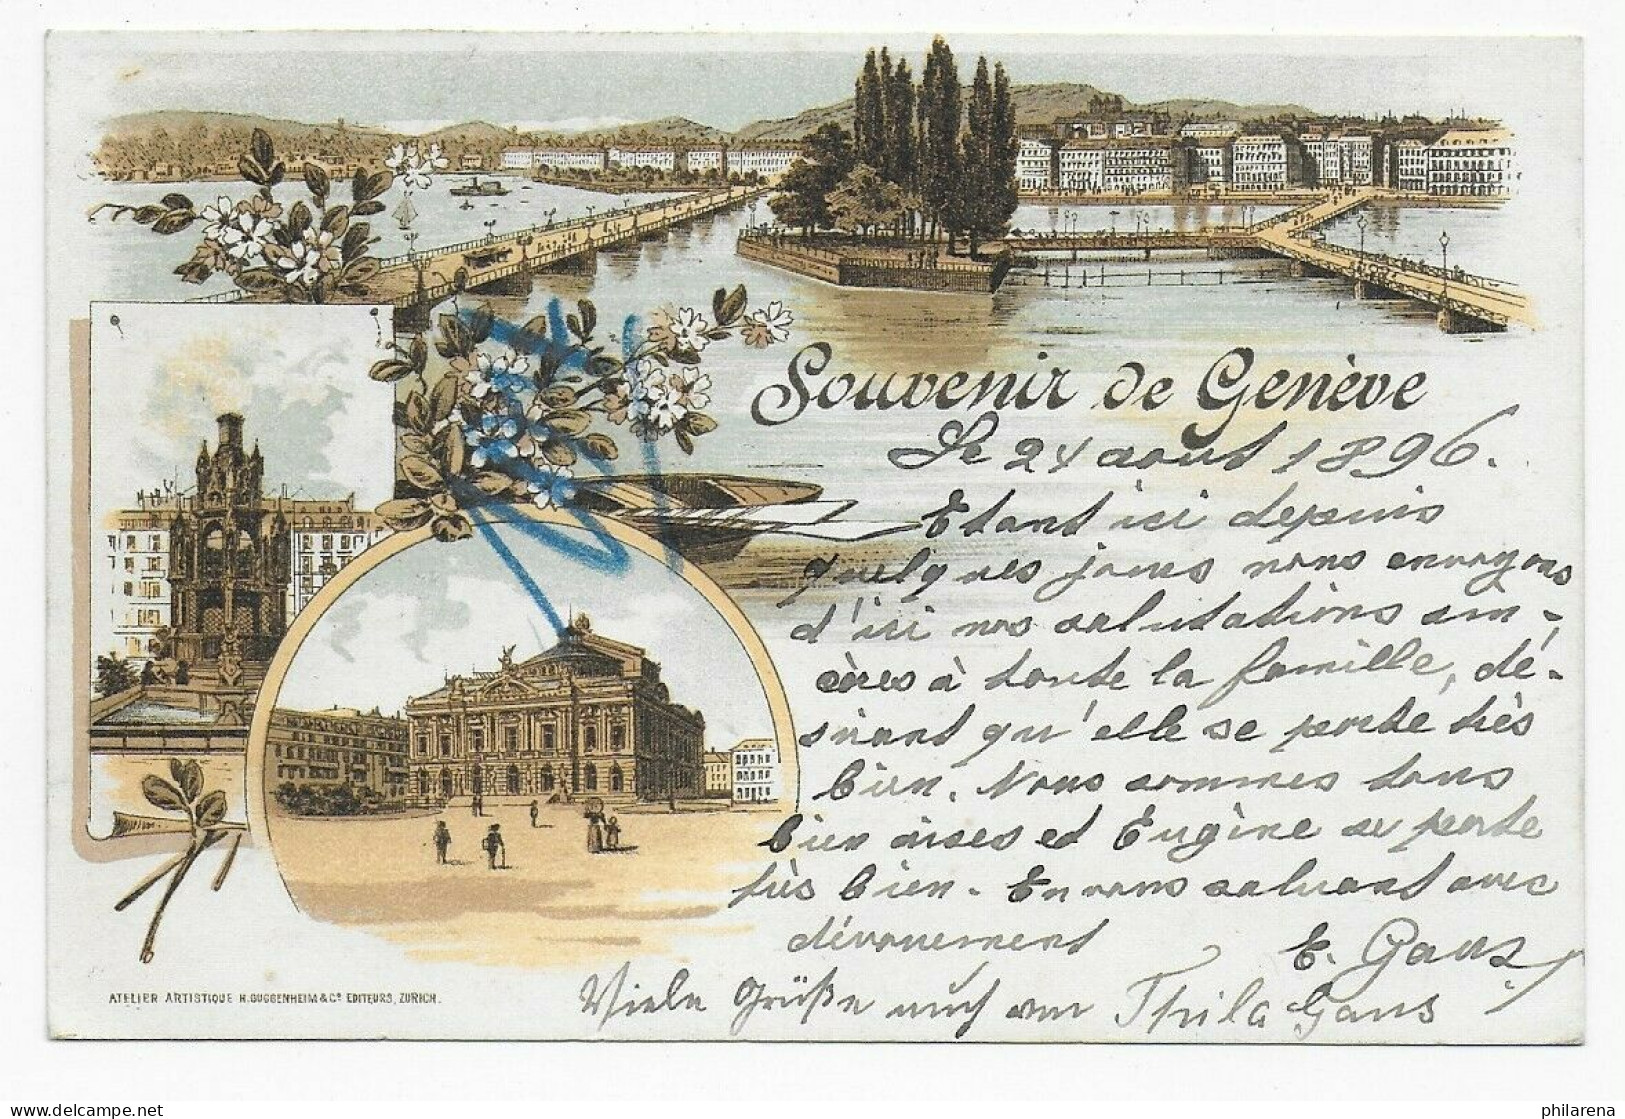 Souvenir de Genève
Le 24 aout 1896.
Etant ici depuis
quelques jours nous envoyons
d'ici nos salutations sin-
cères à toute la famille, dé-
sirant qu'elle se porte très
bien. Nous sommes tous
bien aises et Eugène se porte
très bien. En vous saluant avec
dévouement
E. Gans
Viele Grüße auch von Thila Gans
ATELIER ARTISTIQUE H. GUGGENHEIM & Co EDITEURS, ZURICH.
philarena